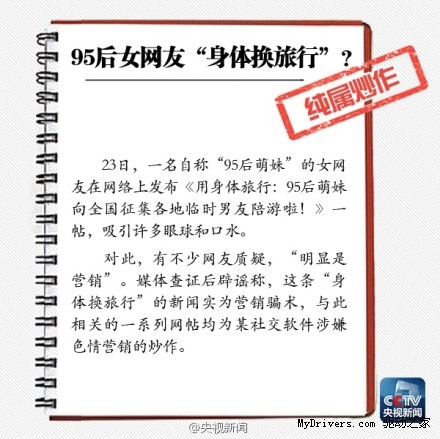 95后女网友“身体换旅行”？
纯属炒作
23日，一名自称“95后萌妹”的女网
友在网络上发布《用身体旅行：95后萌妹
向全国征集各地临时男友陪游啦！》一
帖，吸引许多眼球和口水。
对此，有不少网友质疑，“明显是
营销”。媒体查证后辟谣称，这条“身
体换旅行”的新闻实为营销骗术，与此
相关的一系列网帖均为某社交软件涉嫌
色情营销的炒作。
CCTV
央视新闻
@央视新闻
MyDrivers.com 驱动之家